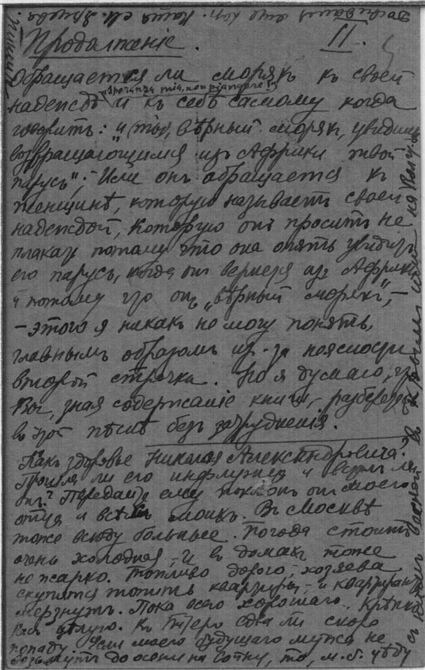 Продолженiе. II.
Обращается ли морякъ къ своей
надеждѣ и къ себѣ самому когда
говоритъ: "и ты, вѣрный морякъ, увидишь
возвращающимся изъ Африки твой
парусъ". Или онъ обращается къ
женщинѣ, которую называетъ своей
надеждой, которую онъ проситъ не
плакать потому что она опять увидитъ
его парусъ, когда онъ вернется изъ Африки
и потому что онъ "вѣрный морякъ", –
– этого я никакъ не могу понять,
главнымъ образомъ из-за неясности
второй строчки. Но я думаю, что
Вы, зная содержанiе книги, разберетесь
въ этой пѣснѣ безъ затрудненiя.
Какъ здоровье Николая Александровича?
Прошла ли его инфлуэнца и
онъ? Передайте ему поклонъ отъ моего
отца и всѣхъ моихъ. Въ Москвѣ
тоже всюду больные. Погода стоитъ
очень холодная, и въ домахъ тоже
не жарко. Топливо дорого, хозяева
скупятся топить квартиры, и квартиранты
мерзнутъ. Пока всего хорошаго. Крѣпко
Вся цѣлую. Къ Питеръ едва ли скоро
попаду. Если моего будущаго мужа не
возьмутъ до осени на войну, то м. б. уѣду